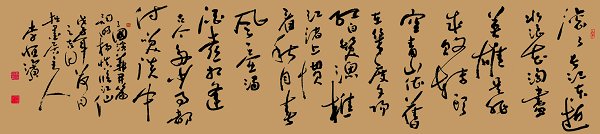 滚滚长江东逝
水浪花淘尽
英雄是非
成败转头
空青山依旧
在几度夕阳
红白发渔樵
江渚上惯
看秋月春
风一壶浊
酒喜相逢
古今多少事都
付笑谈中
三国演义开篇
词明杨慎临江仙
主人